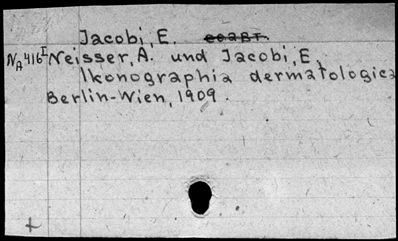 Jacobi, E.
NA 416I Neisser, A. und Jacobi, E.
Ikonographia dermatologica
Berlin-Wien, 1909.